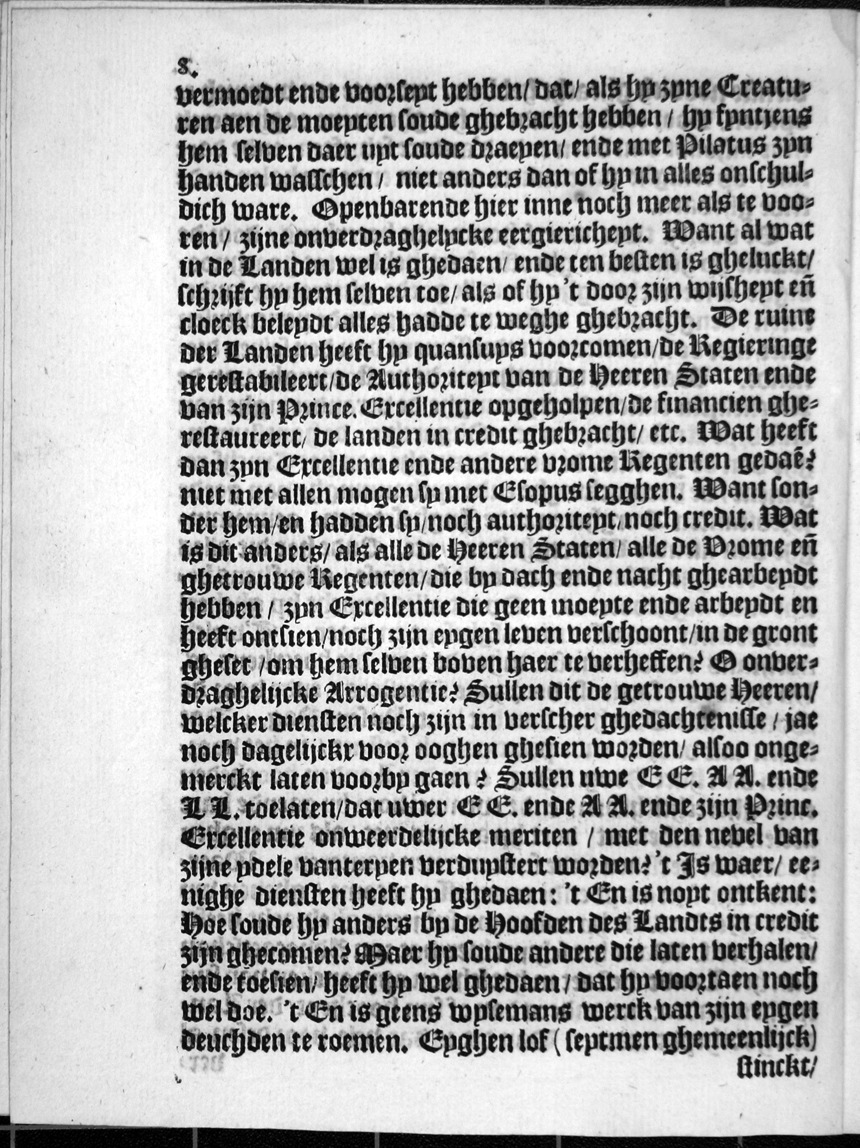 8.
vermoedt ende voorseyt hebben/ dat/ als hy zyne Creatu-
ren aen de moeyten soude ghebracht hebben / hy fyntjens
hem selven daer uyt soude draeyen/ ende met Pilatus zyn
handen wasschen / niet anders dan of hy in alles onschul-
dich ware. Openbarende hier inne noch meer als te voo-
ren / zijne onverdraghelycke eergiericheyt. Want al wat
in de Landen wel is ghedaen/ ende ten besten is gheluckt/
schrijft hy hem selven toe/ als of hy 't door zijn wijsheyt eñ
cloeck beleydt alles hadde te weghe ghebracht. De ruine
der Landen heeft hy quansuys voorcomen/de Regieringe
gerestabileert/de Authoriteyt van de Heeren Staten ende
van zijn Prince. Excellentie opgeholpen/de financien ghe-
restaureert/ de landen in credit ghebracht/ etc. Wat heeft
dan zyn Excellentie ende andere vrome Regenten gedaẽ?
niet met allen mogen sy met Esopus segghen. Want son-
der hem/en hadden sy/noch authoriteyt/noch credit. Wat
is dit anders/ als alle de Heeren Staten/ alle de Vrome eñ
ghetrouwe Regenten/die by dach ende nacht ghearbeydt
hebben / zyn Excellentie die geen moeyte ende arbeydt en
heeft ontsien/noch zijn eygen leven verschoont/in de gront
gheset /om hem selven boven haer te verheffen? O onver-
draghelijcke Arrogentie? Sullen dit de getrouwe Heeren/
welcker diensten noch zijn in verscher ghedachtenisse / jae
noch dagelijckx voor ooghen ghesien worden/ alsoo onge-
merckt laten voorby gaen ? Sullen uwe E E. A A. ende
L L. toelaten/dat uwer E E. ende A A. ende zijn Princ.
Excellentie onweerdelijcke meriten / met den nevel van
zijne ydele vanteryen verduystert worden? 't Is waer/ ee-
nighe diensten heeft hy ghedaen: 't En is noyt ontkent:
Hoe soude hy anders by de Hoofden des Landts in credit
zijn ghecomen? Maer hy soude andere die laten verhalen/
ende toesien/ heeft hy wel ghedaen/ dat hy voortaen noch
wel doe. 't En is geens wysemans werck van zijn eygen
deuchden te roemen. Eyghen lof (seytmen ghemeenlijck)
stinckt/